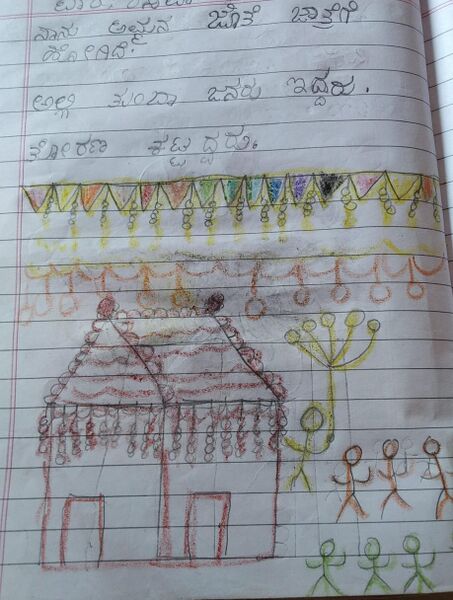 ನಾನು ಅಮ್ಮನ ಜೊತೆ ಜಾತ್ರೆಗೆ
ಹೋಗಿದೆ.
ಅಲ್ಲಿ ತುಂಬಾ ಜನರು ಇದ್ದರು.
ತೋರಣ ಕಟ್ಟಿದ್ದರು.